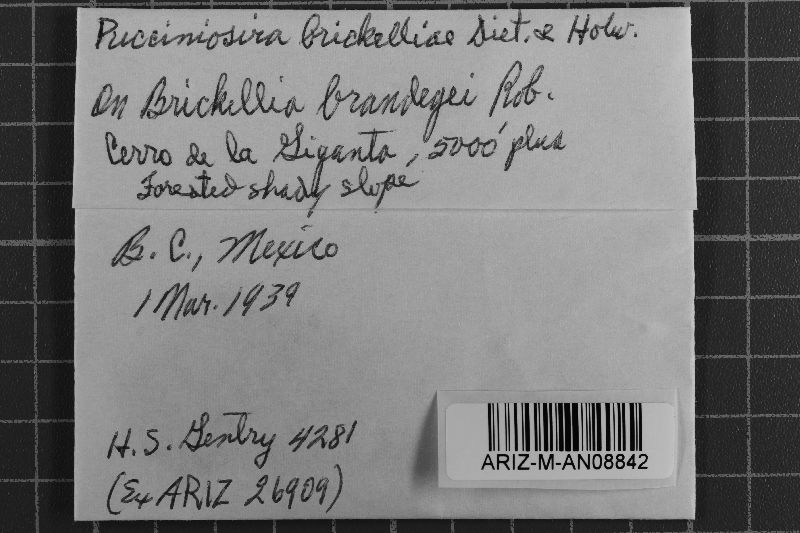 Pucciniosira brickelliae Diet. & Holw.
On Brickellia brandegei Rob.
Cerro de la Giganta, 5000' plus
Forested shady slope
B. C., Mexico
1 Mar. 1939
H. S. Gentry 4281
(Ex ARIZ 26909)
ARIZ-M-AN08842